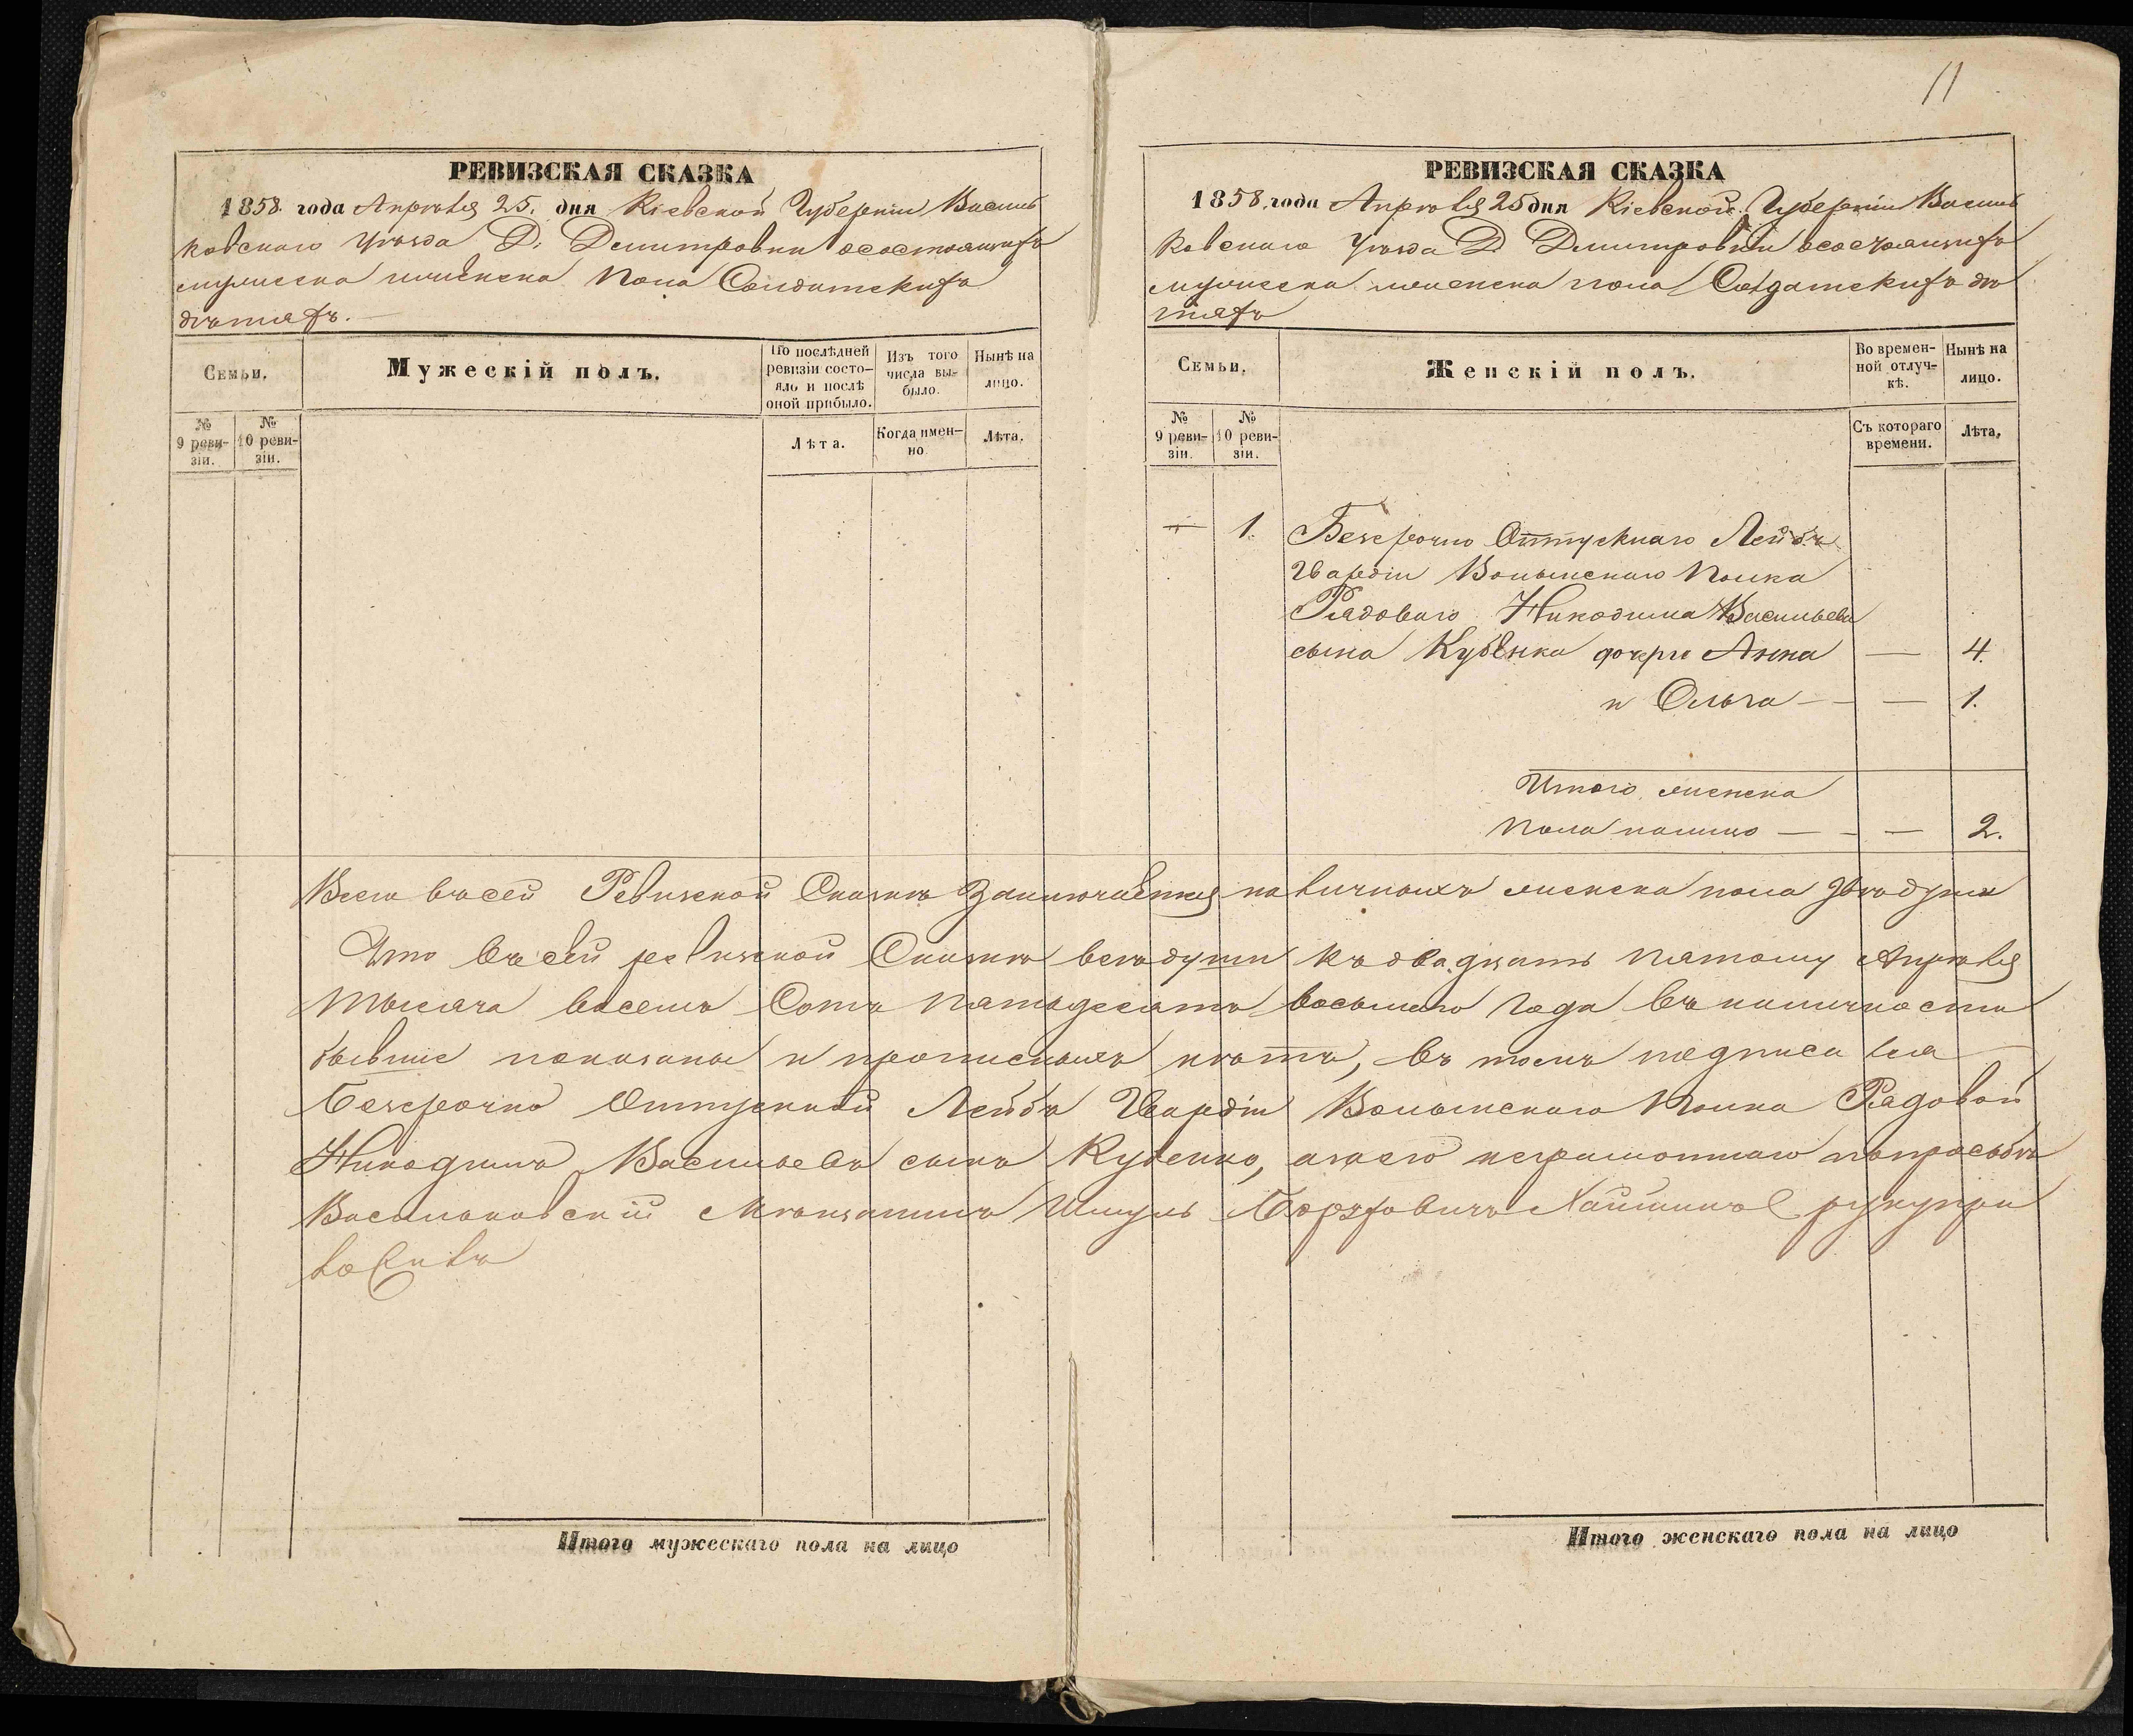 РЕВИЗСКАЯ СКАЗКА
1858. года Апрѣля 25. дня Кіевской Губерніи Василь
ковскаго Уѣзда Д. Дмитровки о состоящихъ
мужеска и женска пола Солдатскихъ
дѣтяхъ.
Семьи.
Мужескій полъ.
По послѣдней ревизіи состо-
яло и послѣ оной прибыло.
Изъ того числа вы-
было.
Нынѣ на лицо.
№ 9 реви-
зіи.
№ 10 реви-
зіи.
Лѣта.
Когда имен-
но
Лѣта.
11
РЕВИЗСКАЯ СКАЗКА
1858. года Апрѣля 25 дня Кіевской Губерніи Василь
ковскаго Уѣзда Д Дмитровки о состоящихъ
мужеска и женска пола Солдатскихъ дѣ
тяхъ
Семьи.
Женскій полъ.
Во времен-
ной отлуч-
кѣ.
Нынѣ на лицо.
№ 9 реви-
зіи.
№ 10 реви-
зіи.
Съ котораго времени.
Лѣта.
— 1. Безсрочно Отпускнаго Лейбъ
Гвардіи Волынскаго Полка
Рядоваго Никодима Васильева
сына Кубенка дочери Анна — 4.
и Ольга — — 1.
Итого женска
пола налицо — — — 2.
Всего въ сей Ревизской Сказкѣ заключается наличныхъ женска пола двѣ души
Что въ сей ревизской Сказкѣ всѣ души къ двадцать пятому Апрѣля
тысяча восемь Сотъ пятьдесятъ восьмаго года въ наличности
бывшіе показаны и прописныхъ нѣтъ, въ томъ подписался
Безсрочно Отпускной Лейбъ Гвардіи Волынскаго Полка Рядовой
Никодимъ Васильевъ сынъ Кубенко, а за его неграмотнаго по просьбѣ
Васильковскій Мѣщанинъ Шмуль Хаймик руку при
Итого мужескаго пола на лицо
Итого женскаго пола на лицо